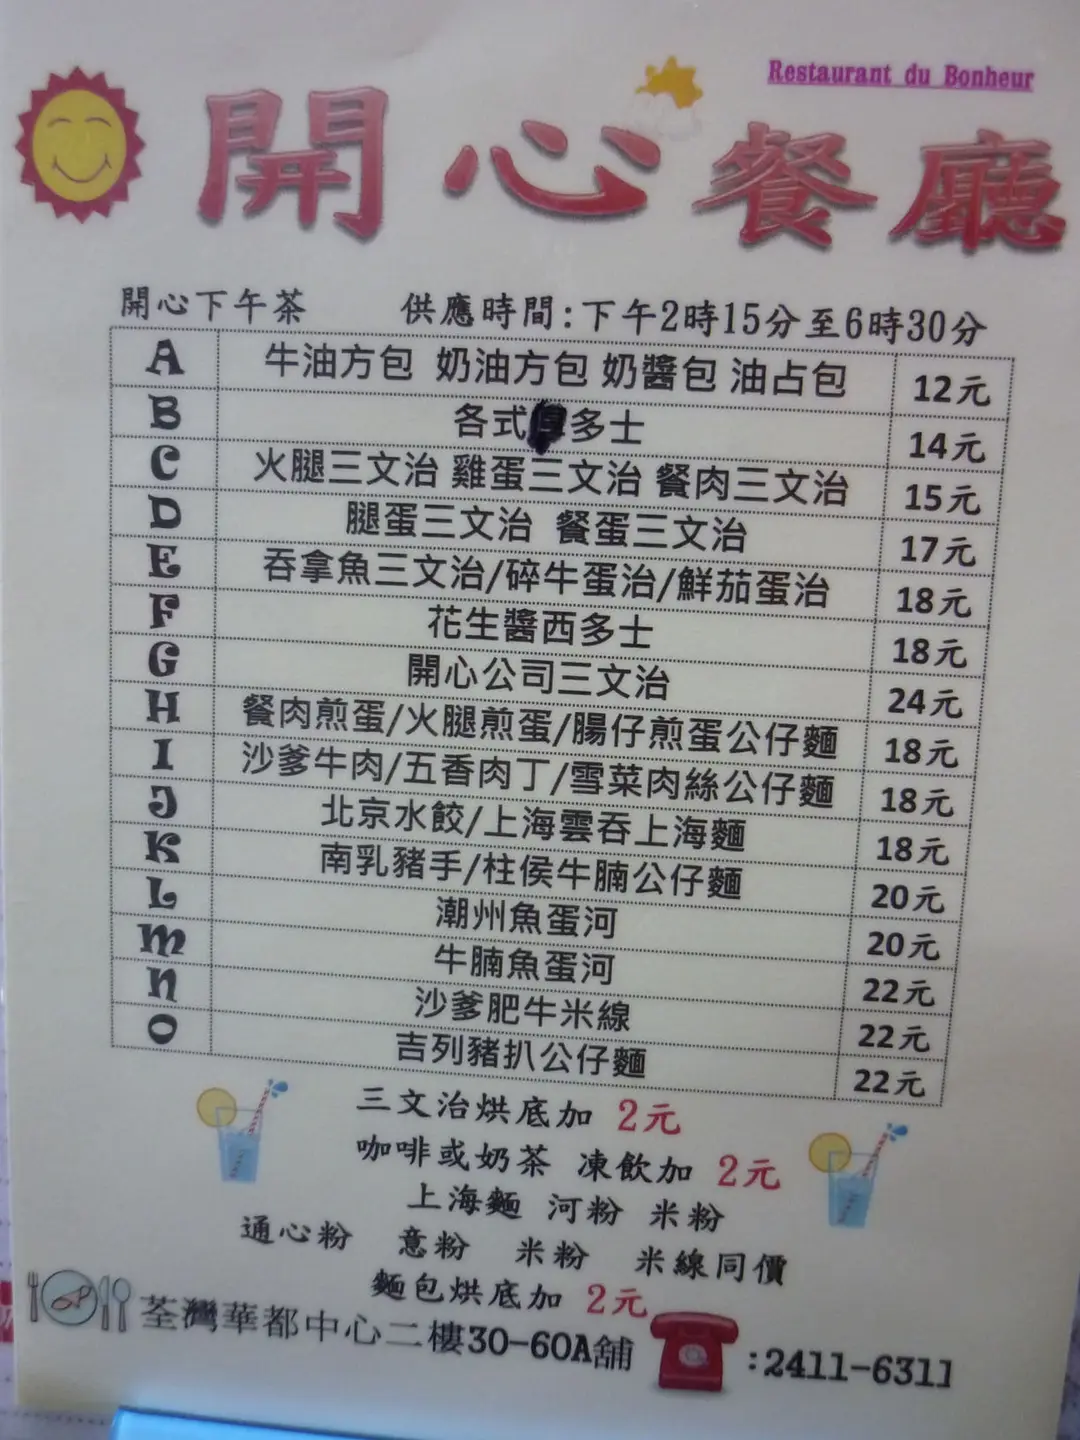 Restaurant du Bonheur
開心餐廳
開心下午茶 供應時間:下午2時15分至6時30分
A 牛油方包 奶油方包 奶醬包 油占包 12元
B 各式多士 14元
C 火腿三文治 雞蛋三文治 餐肉三文治 15元
D 腿蛋三文治 餐蛋三文治 17元
E 吞拿魚三文治/碎牛蛋治/鮮茄蛋治 18元
F 花生醬西多士 18元
G 開心公司三文治 24元
H 餐肉煎蛋/火腿煎蛋/腸仔煎蛋公仔麵 18元
I 沙爹牛肉/五香肉丁/雪菜肉絲公仔麵 18元
J 北京水餃/上海雲吞上海麵 18元
K 南乳豬手/柱侯牛腩公仔麵 20元
L 潮州魚蛋河 20元
M 牛腩魚蛋河 22元
N 沙爹肥牛米線 22元
O 吉列豬扒公仔麵 22元
三文治烘底加 2元
咖啡或奶茶 凍飲加 2元
上海麵 河粉 米粉
通心粉 意粉 米粉 米線同價
麵包烘底加 2元
荃灣華都中心二樓30-60A舖 :2411-6311